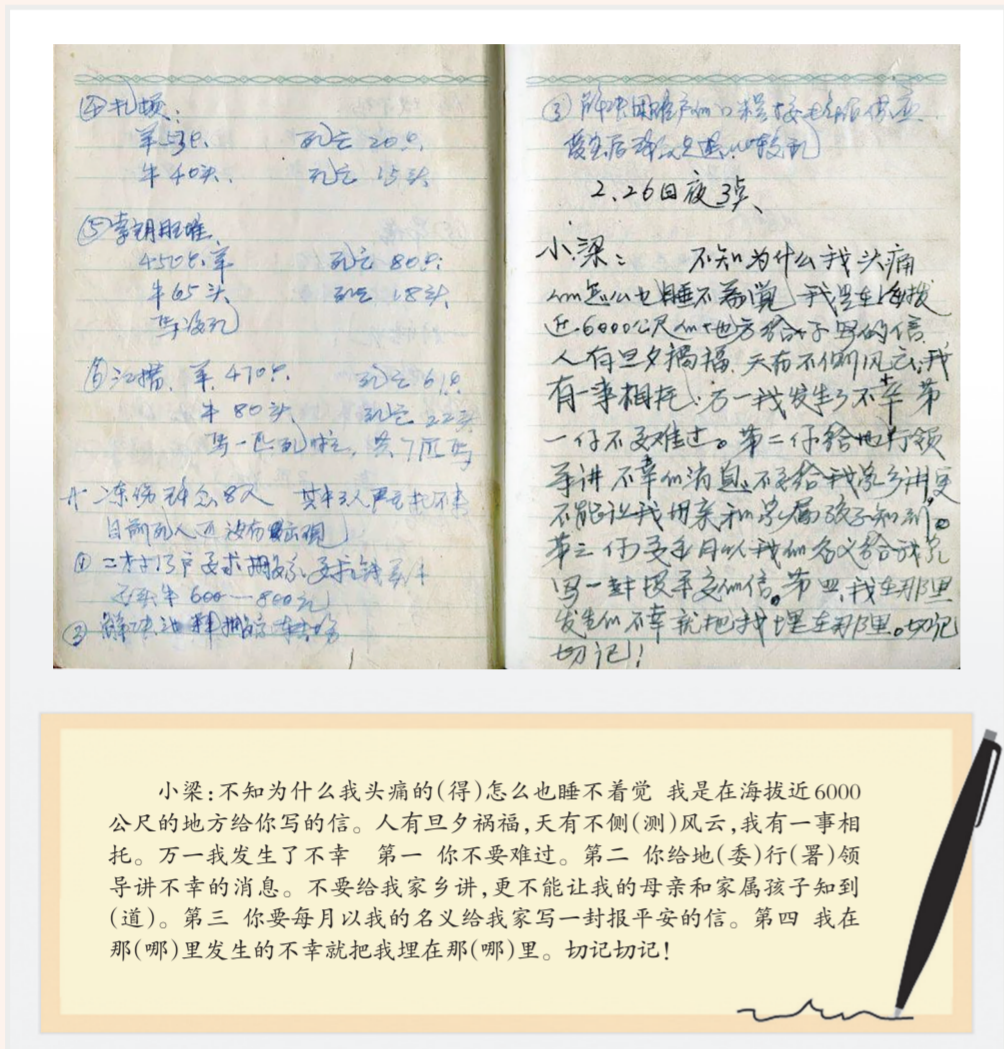 ④扎顿：
羊53只. 死亡20只.
牛40头. 死亡15头
⑤索朗旺堆
450只羊 死亡80只.
牛65头 死亡18头
马没死
羊.470只. 死亡61只
牛80头. 死亡22头
马一匹死亡，共7匹马
冻伤 8人 其中3人
目前死人还没有出现
①二村13户要求搬家
600—800元
③解决困难户的口粮
2.26日夜3点、
小梁： 不知为什么我头痛
的怎么也睡不着觉 我是在海拔
近6000公尺的地方给你写的信.
人有旦夕祸福.天有不侧风云，我
有一事相托.万一我发生了不幸 第
一 你不要难过。第二 你给地行领
导讲不幸的消息。不要给我家乡讲，更
不能让我母亲和家属孩子知到。
第三 你要每月以我的名义给我家
写一封报平安的信。第四，我在那里
发生的不幸就把我埋在那里。切记
切记！
小梁：不知为什么我头痛的(得)怎么也睡不着觉 我是在海拔近6000
公尺的地方给你写的信。人有旦夕祸福，天有不侧(测)风云，我有一事相
托。万一我发生了不幸 第一 你不要难过。第二 你给地(委)行(署)领
导讲不幸的消息。不要给我家乡讲，更不能让我的母亲和家属孩子知到
(道)。第三 你要每月以我的名义给我家写一封报平安的信。第四 我在
那(哪)里发生的不幸就把我埋在那(哪)里。切记切记！